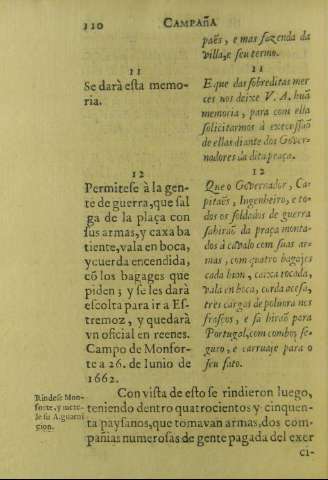 110 CAMPAñA
paẽs, e mas fazenda da
villa, e seu termo.
11
Se darà esta memo-
ria.
11
E que das sobreditas mer
ces nos deixe V. A. huã
memoria, para com ella
solicitarmos á execessaõ
de ellas diante dos Gover-
nadores da dita praça.
12
Permitese à la gen-
te de guerra, que sal
ga de la plaça con
sus armas, y caxa ba
tiente, vala en boca,
y cuerda encendida,
cõ los bagages que
piden; y se les darà
escolta para ir a Es-
tremoz, y quedarà
vn oficial en reenes.
Campo de Monfor-
te a 26. de Iunio de
1662.
12
Que o Governador, Ca-
pitaẽs, Ingenheiro, e to-
dos os soldados de guerra
sahiraõ da praça monta-
dos á cavalo com suas ar-
mas, com quatro bagajes
cada hum, caixa tocada,
vala en boca, corda acesa,
tres cargas de polvora nos
frascos, e sá hiraõ para
Portugal, com comboy se-
guro, e carruaje para o
seu fato.
Rindese Mon-
forte, y mete-
le su A. guarni
cion.
Con vista de esto se rindieron luego,
teniendo dentro quatrocientos y cinquen-
ta paysanos, que tomavan armas, dos com-
pañias numerosas de gente pagada del exer
ci-